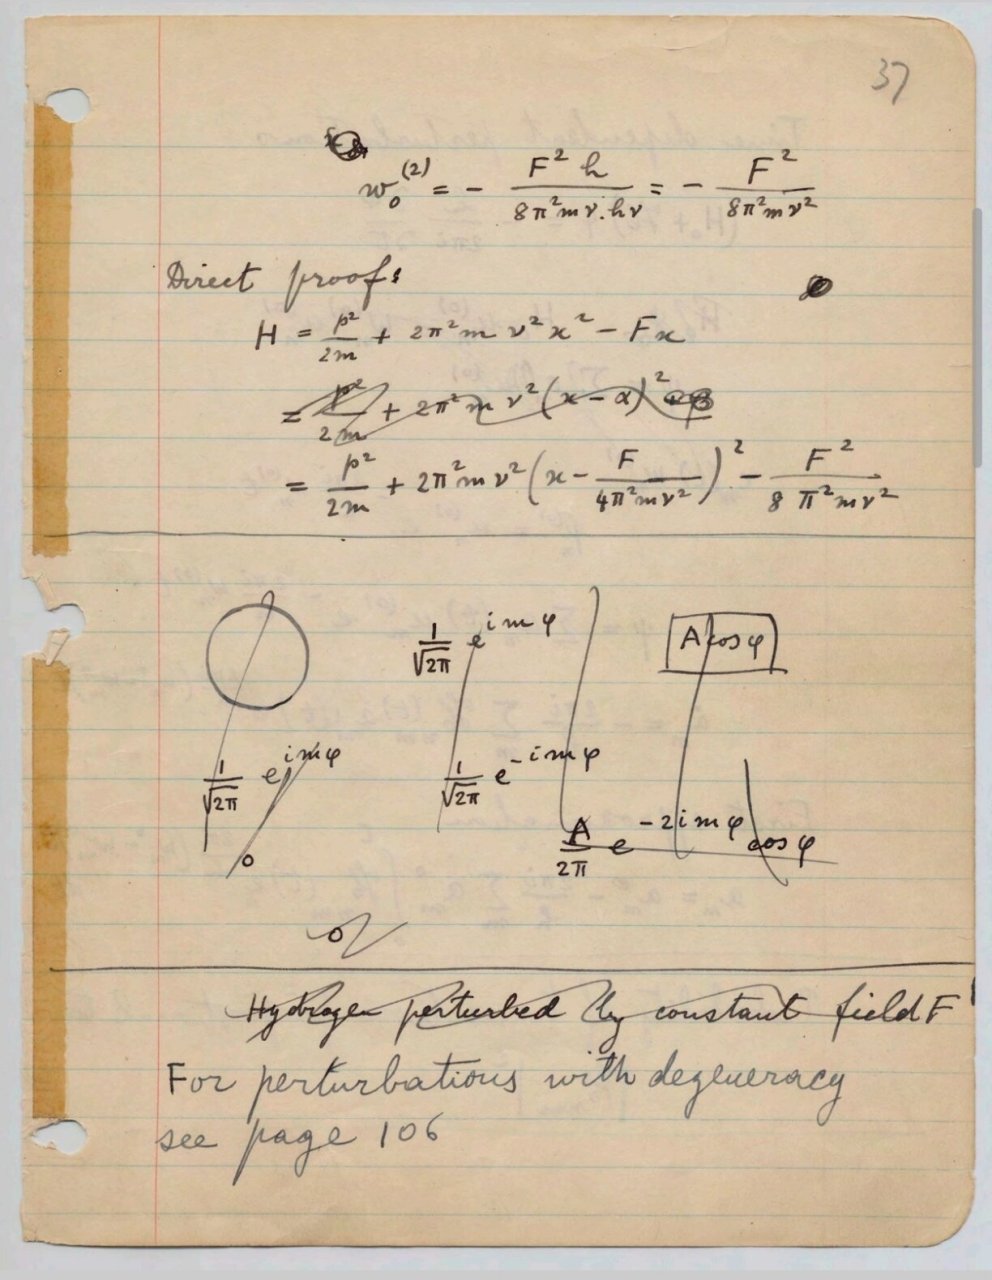 37
w₀⁽²⁾ = − F² h / 8π²mν.hν = − F² / 8π²mν²
Direct proof:
H = p²/2m + 2π²m ν² x² − Fx
= p²/2m + 2π²m ν² (x − α)² + β
= p²/2m + 2π²mν² (x − F/4π²mν²)² − F²/8π²mν²
1/√2π e^{imφ} A cos φ
1/√2π e^{imφ} 1/√2π e^{−imφ}
0 A/2π e^{−2imφ} cos φ
0
Hydrogen perturbed by constant field F
For perturbations with degeneracy
see page 106